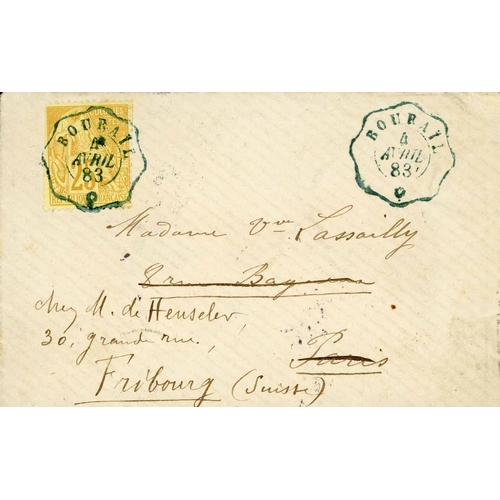 BOURAIL
4
AVRIL
83
25
BOURAIL
4
AVRIL
83
Madame Vve Lassailly
8 rue
chez M. de Henseler
30, grande rue,
Paris
Fribourg (Suisse)